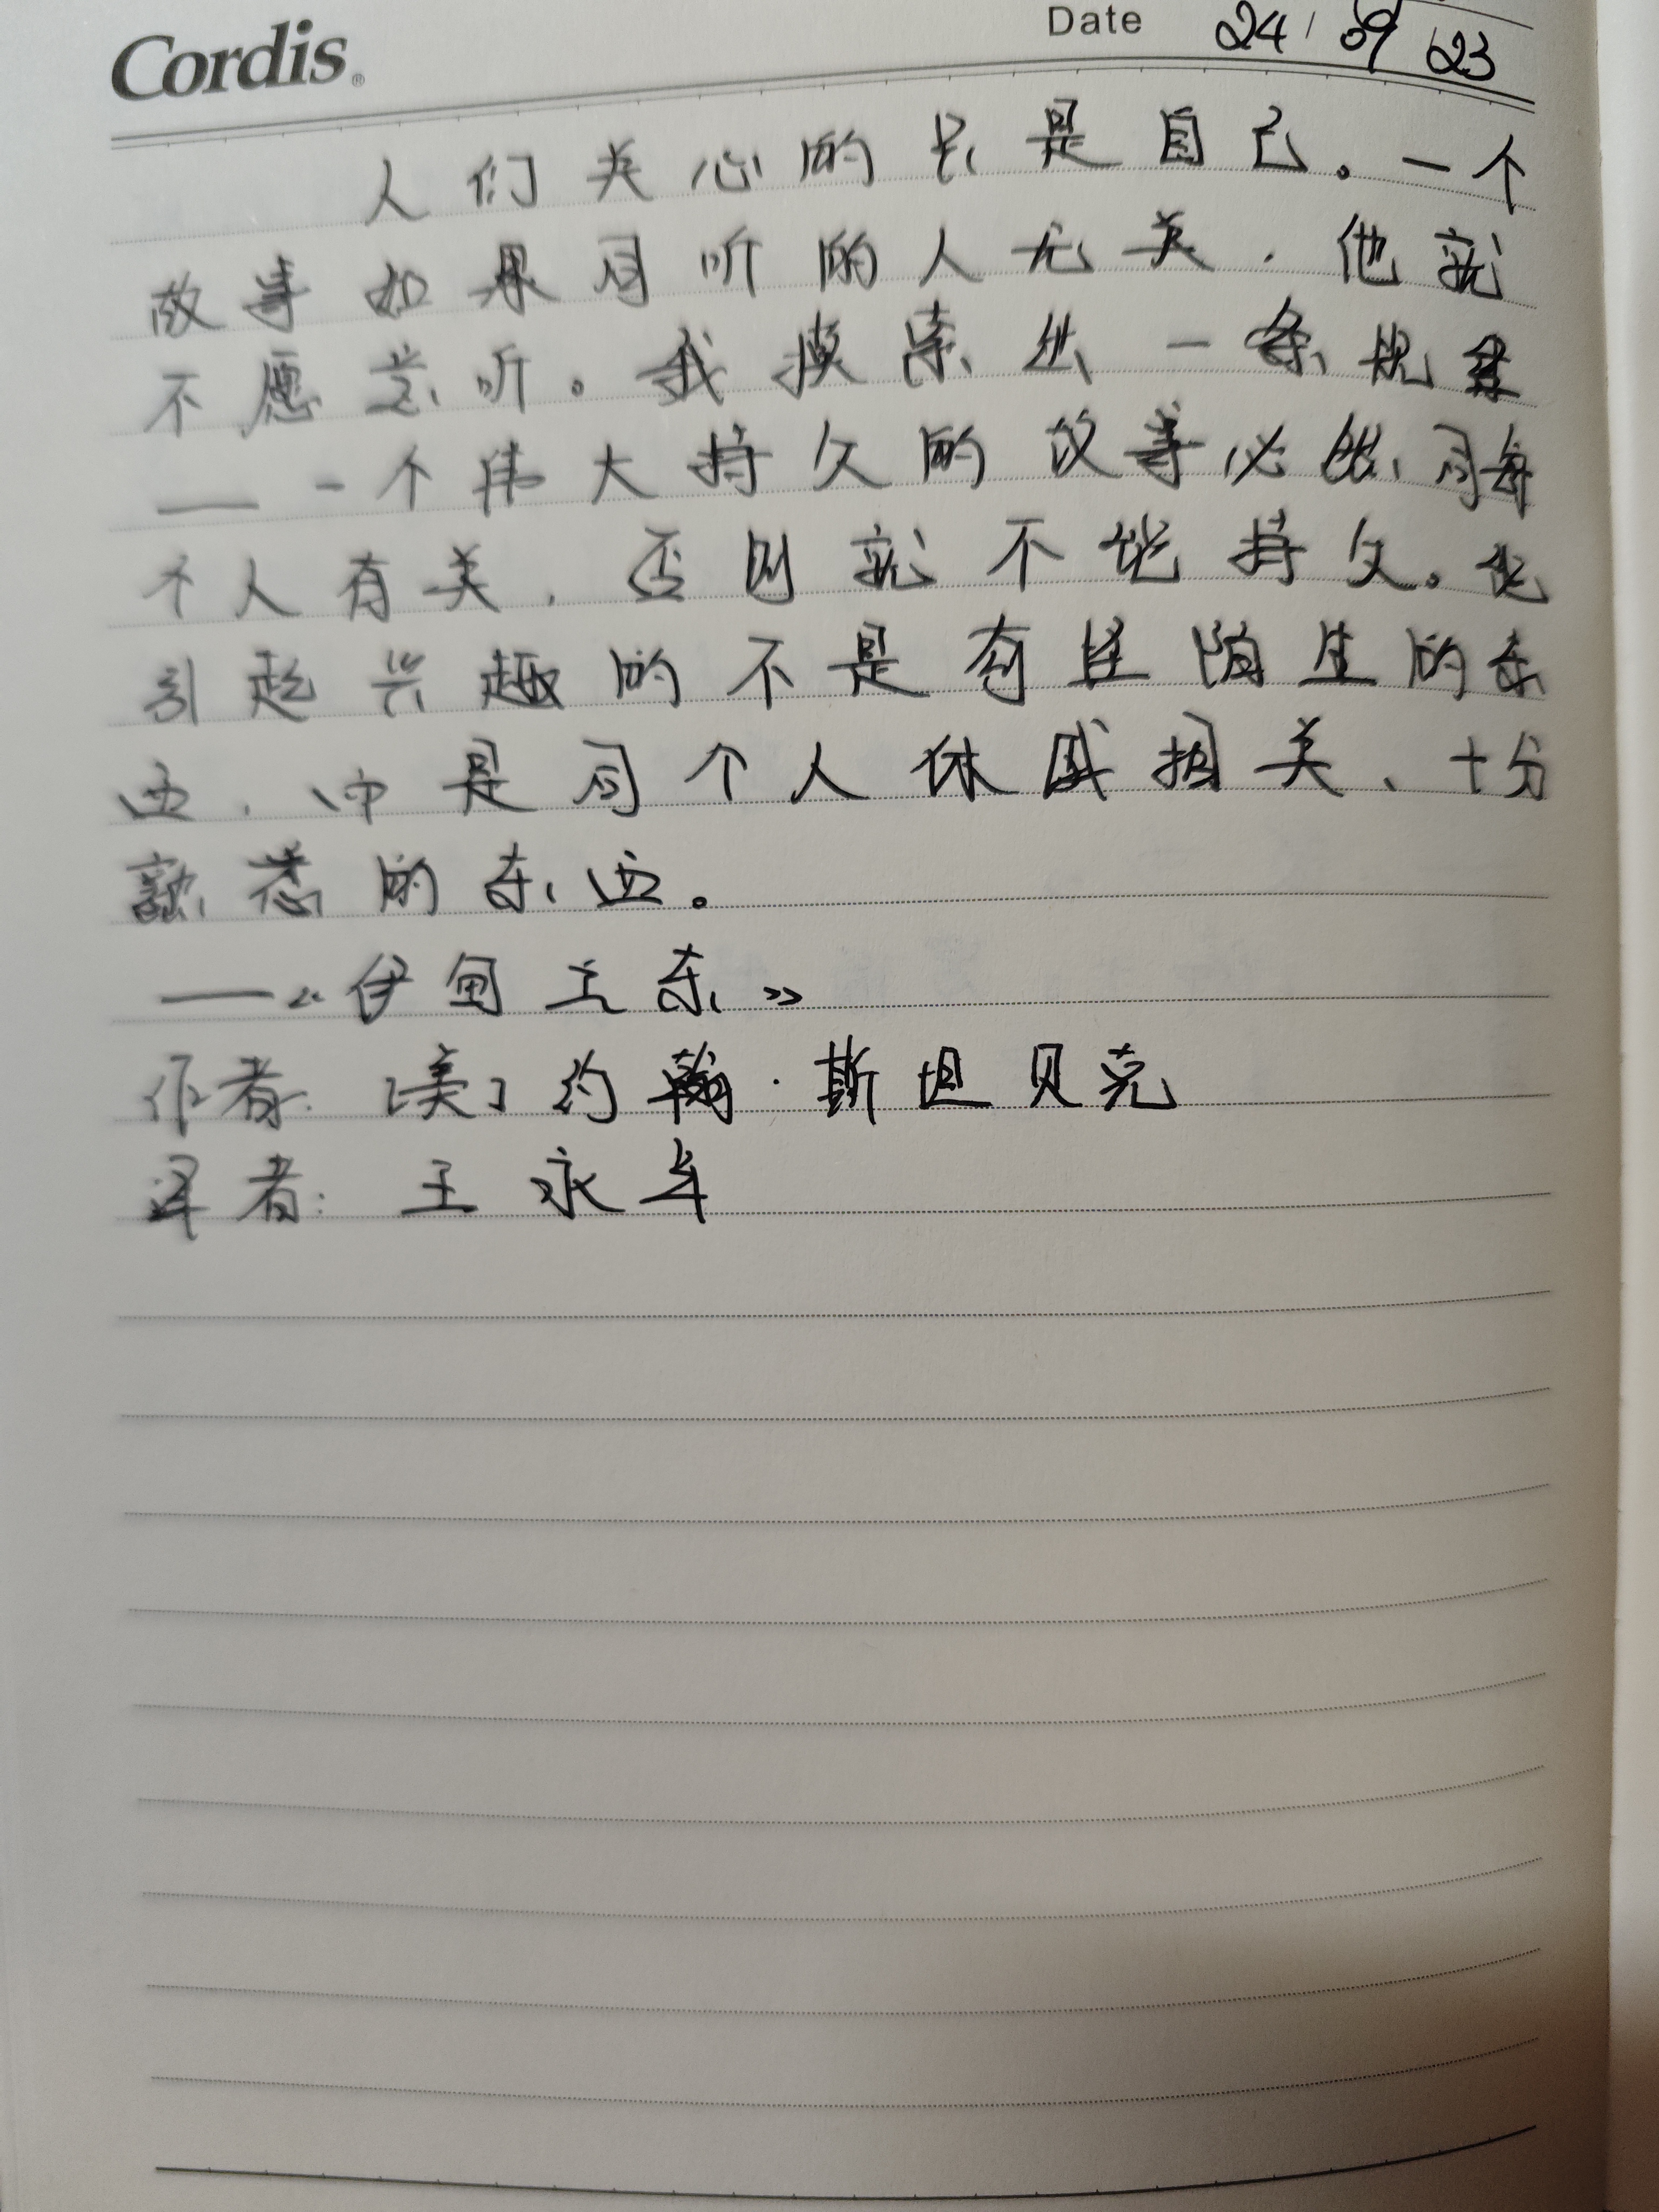 Cordis®
Date 24/09/23
人们关心的只是自己。一个
故事如果同听的人无关,他就
不愿意听。我摸索出一条规律
——一个伟大持久的故事必然同每
个人有关,否则就不能持久。能
引起兴趣的不是奇怪陌生的东
西,而是同个人休戚相关、十分
熟悉的东西。
——《伊甸之东》
作者:[美]约翰·斯坦贝克
译者:王永年